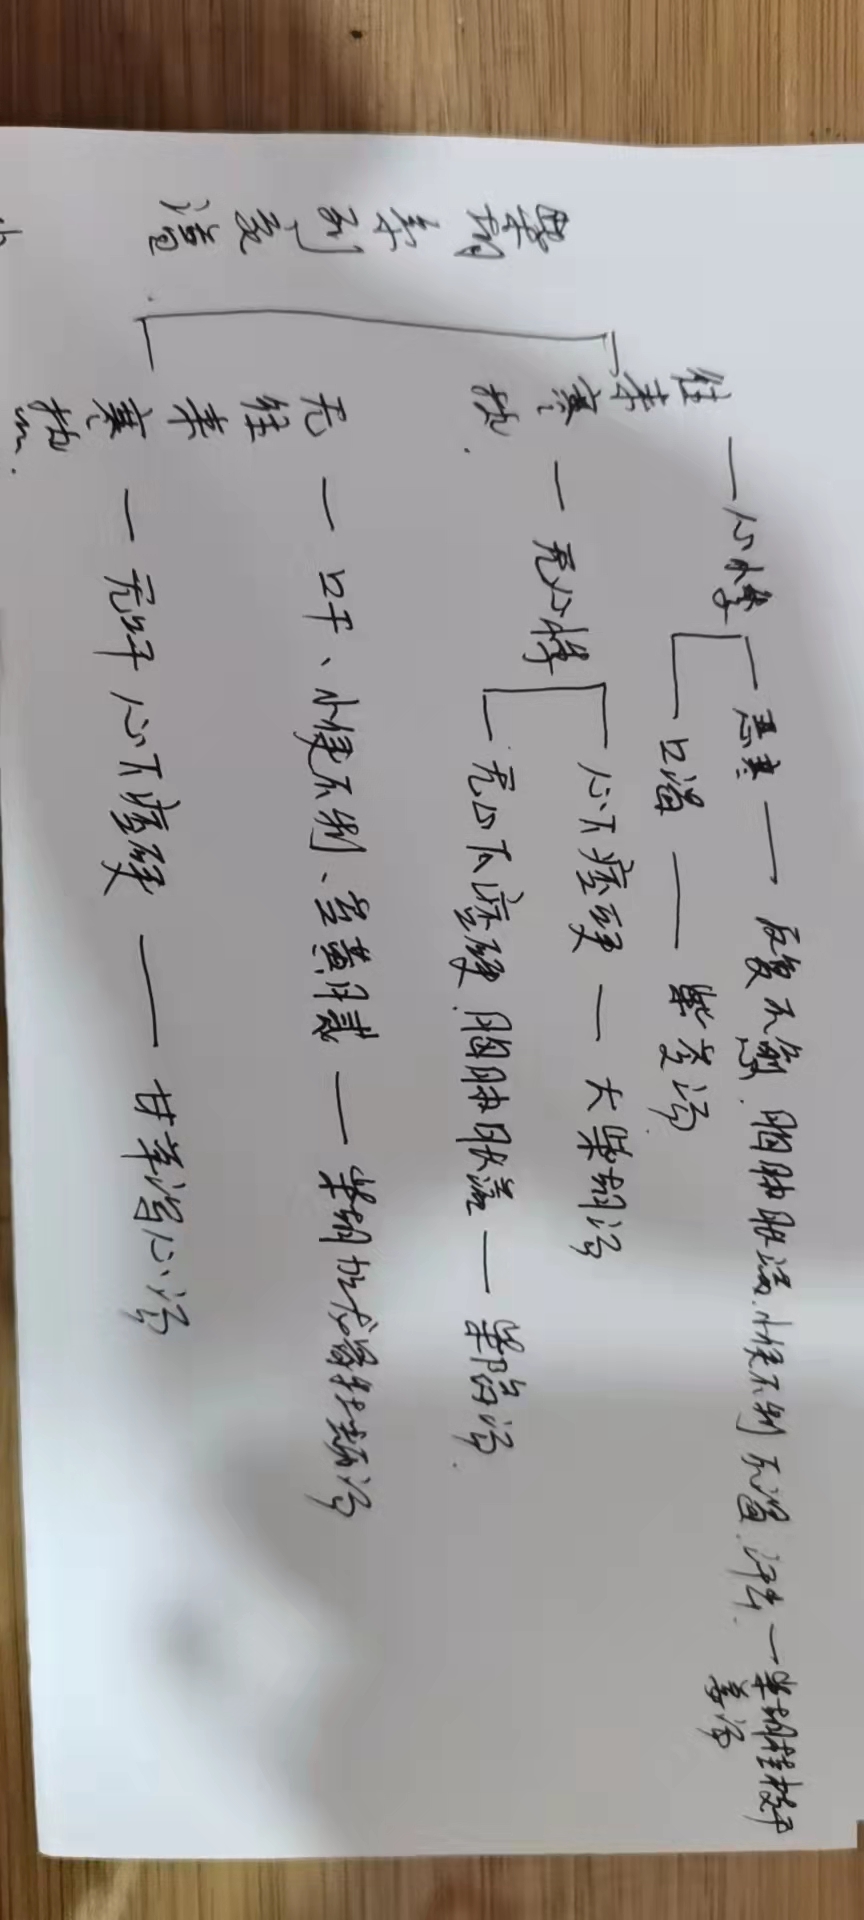 柴胡系列变
往来寒热
一心悸
一恶寒 — 反复不愈.胸胁胀满.小便不利 不渴.汗出.一柴胡桂枝干姜汤
一口渴 — 柴苓汤
一无心悸
一心下痞硬 — 大柴胡汤
一无心下痞硬 胸胁胀 — 柴陷汤
无往来寒热
一口干、小便不利、 — 柴胡加龙骨牡蛎汤
一无口干 心下痞硬 — 甘草泻心汤